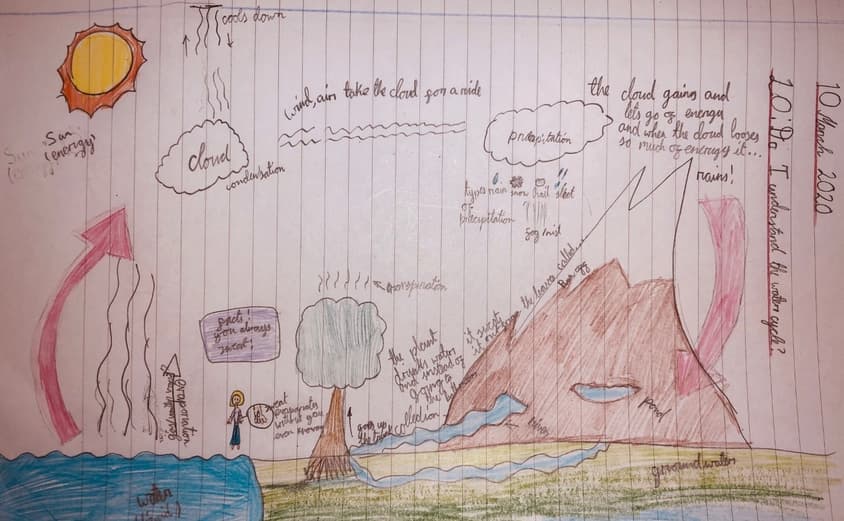 10 March 2020
L.O: Do I understand the water cycle?
cools down
Sun
(energy)
cloud
condensation
wind, air take the cloud for a ride
precipitation
the cloud gains and
lets go of energy
and when the cloud looses
so much of energy it...
rains!
types rain snow hail sleet
of
precipitation
fog/mist
evaporation
facts!
you always
sweat!
sweat
evaporates
without you
even knowing
the plant
drinks water
and instead of
going to
the
collection
goes up
it sweat
it out from the leaves called
pond
River
ground water
water